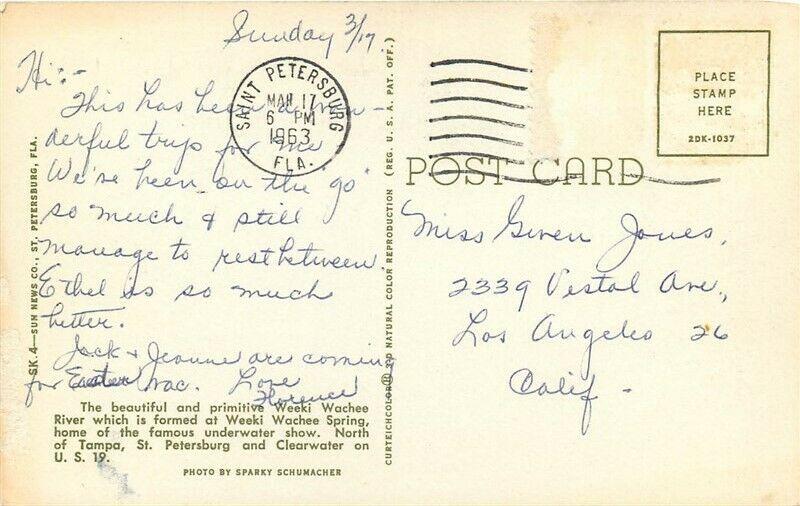 Sunday 3/17.
Hi:-
This has been a won-
derful trip for me
We've been on the "go"
so much & still
manage to rest between.
Ethel is so much
better.
Jack & Jeanne are coming
for Easter vac. Love
Florence
SAINT PETERSBURG
MAR 17
6 PM
1963
FLA.
SK. 4—SUN NEWS CO., ST. PETERSBURG, FLA.
The beautiful and primitive Weeki Wachee
River which is formed at Weeki Wachee Spring,
home of the famous underwater show. North
of Tampa, St. Petersburg and Clearwater on
U. S. 19.
PHOTO BY SPARKY SCHUMACHER
CURTEICHCOLOR® 3-D NATURAL COLOR REPRODUCTION (REG. U. S. A. PAT. OFF.)
PLACE
STAMP
HERE
2DK-1037
POST CARD
Miss Gwen Jones,
2339 Vestal Ave.,
Los Angeles 26
Calif -